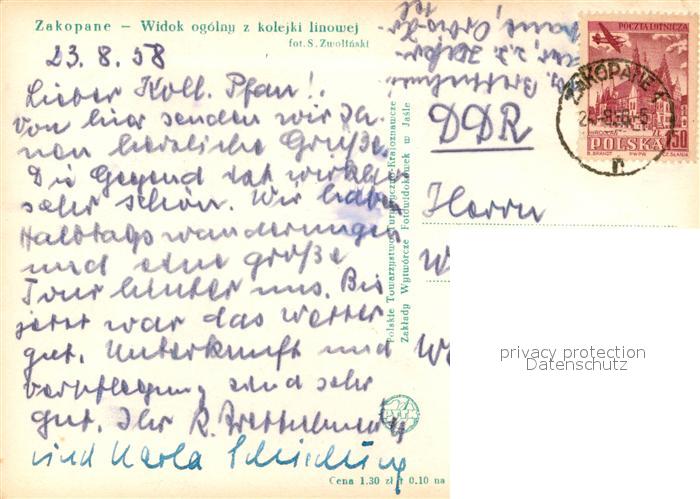 Zakopane – Widok ogólny z kolejki linowej
fot. S. Zwoliński
23.8.58
Lieber Koll. Pfan!
Von hier senden wir Ih-
nen herzliche Grüße.
Die Gegend ist wirklich
sehr schön. Wir haben
Halbtagswanderungen
und eine große
Tour hinter uns. Bis
jetzt war das Wetter
gut. Unterkunft und
Verpflegung sind sehr
gut. Ihr R.
und Karla
Polskie Towarzystwo Turystyczno-Krajoznawcze
Zakłady Wytwórcze Fotowidokówek w Jaśle
PTTK
Cena 1.30 zł + 0.10 na
DDR
Herrn
W
We
POCZTA LOTNICZA
WROCŁAW
POLSKA
ZŁ 150
ZAKOPANE 1
privacy protection
Datenschutz